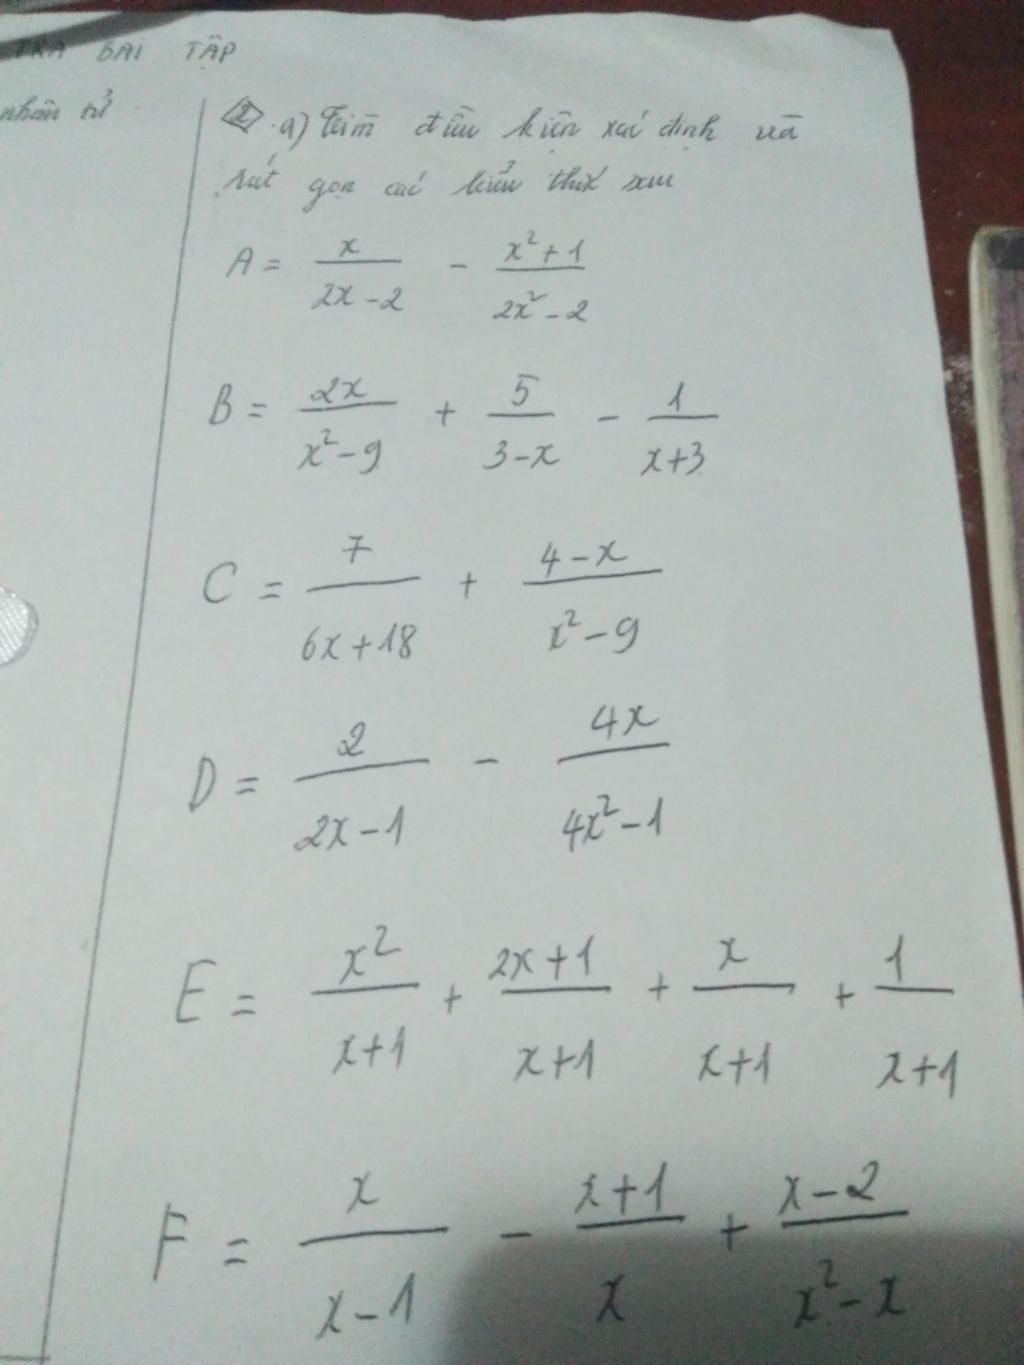 TRA BÀI TẬP
nhân tử
2 a) Tìm điều kiện xác định và
rút gọn các biểu thức sau
A = x/(2x-2) - (x²+1)/(2x²-2)
B = 2x/(x²-9) + 5/(3-x) - 1/(x+3)
C = 7/(6x+18) + (4-x)/(x²-9)
D = 2/(2x-1) - 4x/(4x²-1)
E = x²/(x+1) + (2x+1)/(x+1) + x/(x+1) + 1/(x+1)
F = x/(x-1) - (x+1)/x + (x-2)/(x²-x)